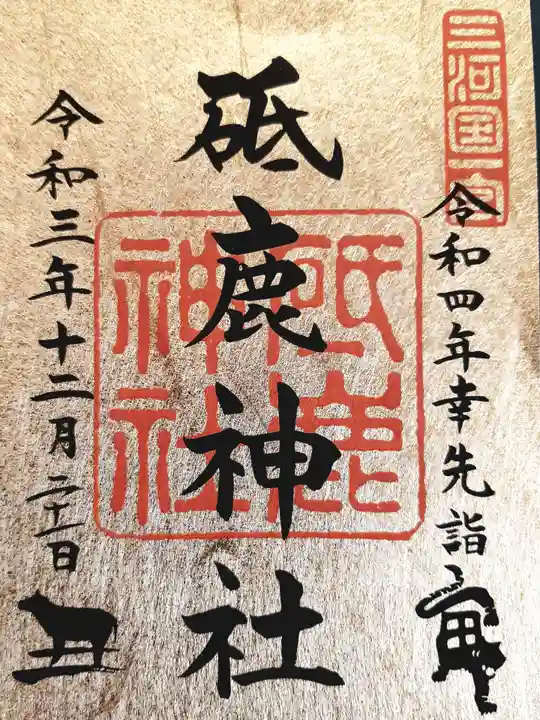 三河国一宮
令和四年幸先詣
寅
砥鹿神社
砥鹿神社
令和三年十二月二十一日
丑